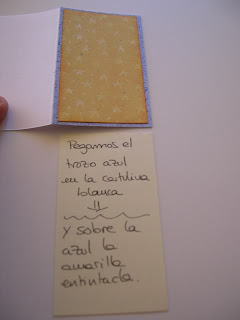 Pegamos el
trozo azul
en la cartulina
blanca
⇓
Y sobre la
azul la
amarilla
entintada.